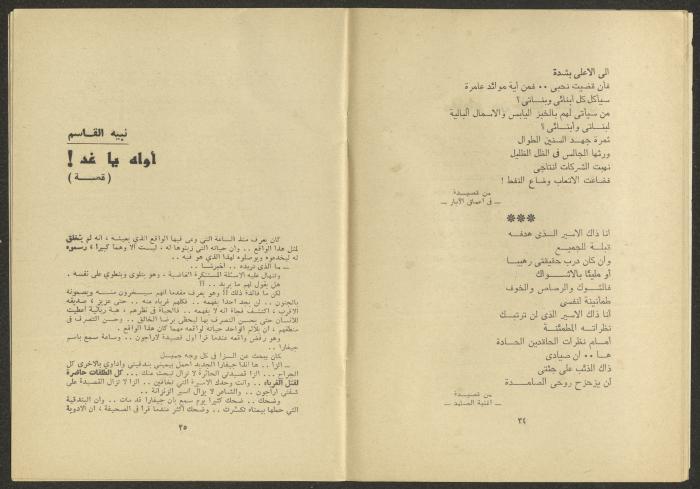 الى الاعلى بشدة
فان قضيت نحبى ٠٠ فمن أية موائد عامرة
سيأكل كل أبنائى وبناتى ؟
من سيأتى لهم بالخبز اليابس والاسمال البالية
لبناتى وأبنائى ؟
ثمرة جهد السنين الطوال
ورثها الجالس فى الظل الظليل
نهبت الشركات انتاجى
فضاعت الاتعاب وضاع النفط !
من قصيدة
ــ فى أعماق الآبار ــ
***
انا ذاك الاسير الذى هدفه
قبلة للجميع
وان كان درب حقيقتى رهيبا
أو مليئا بالاشواك
فالشوك والرصاص والخوف
طمأنينة لنفسى
انا ذاك الاسير الذى لن ترتبك
نظراته المطمئنة
أمام نظرات الحاقدين الحادة
ها ٠٠ ان صيادى
ذاك الذئب على جثتى
لن يزحزح روحى الصامدة
من قصيدة
ــ أغنية الصليد ــ
٣٤
نبيه القاسم
أواه يا غد !
( قصة )
كان يعرف منذ الساعة التي وعى فيها الواقع الذي يعيشه ، انه لم يخلق
لمثل هذا الواقع .. وان حياته التي زينوها له ، ليست الا وهما كبيرا ، رسموه
له ليخدعوه ويوصلوه لهذا الذي هو فيه ..
ــ ما الذي تريده .. اخبرنا ..
وتنهال عليه الاسئلة المستنكرة الغاضبة ، وهو يتلوى وينطوي على نفسه .
هل يقول لهم ما يريد .. ؟!
لكن ما فائدة ذلك ؟! وهو يعرف مقدما انهم سيسخرون منه ويصمونه
بالجنون .. لن يجد احدا يفهمه .. فكلهم غرباء عنه .. حتى عزيز ، صديقه
الاقرب ، اكتشف فجأة انه لا يفهمه .. فالحياة في نظرهم ، هبة ربانية اعطيت
للانسان حتى يحسن التصرف بها ليحظى برضا الخالق .. وحسن التصرف في
منطقهم ، ان يلائم الواحد حياته لواقعه مهما كان هذا الواقع .
وهو رفض واقعه عندما قرأ اول قصيدة لاراجون .. وساعة سمع باسم
جيفارا ..
كان يبحث عن الزا في كل وجه جميل
ــ الزا .. ها انذا جيفارا الجديد احمل بيميني بندقيتي واداوي بالاخرى كل
الجراح ... الزا قصيدتي الحائرة لا تزال تبحث عنك .. كل الطلقات حاضرة
لقتل الغرباء .. وانت وحدك الاسيرة التي تخافين .. الزا لا تزال القصيدة على
شفتي اراجون .. والشاعر لا يزال اسير الزنزانة ..
وضحك .. ضحك كثيرا يوم سمع بأن جيفارا قد مات .. وان البندقية
التي حملها بيمناه تكسرت .. وضحك أكثر عندما قرأ في الصحيفة ، ان الادوية
٣٥